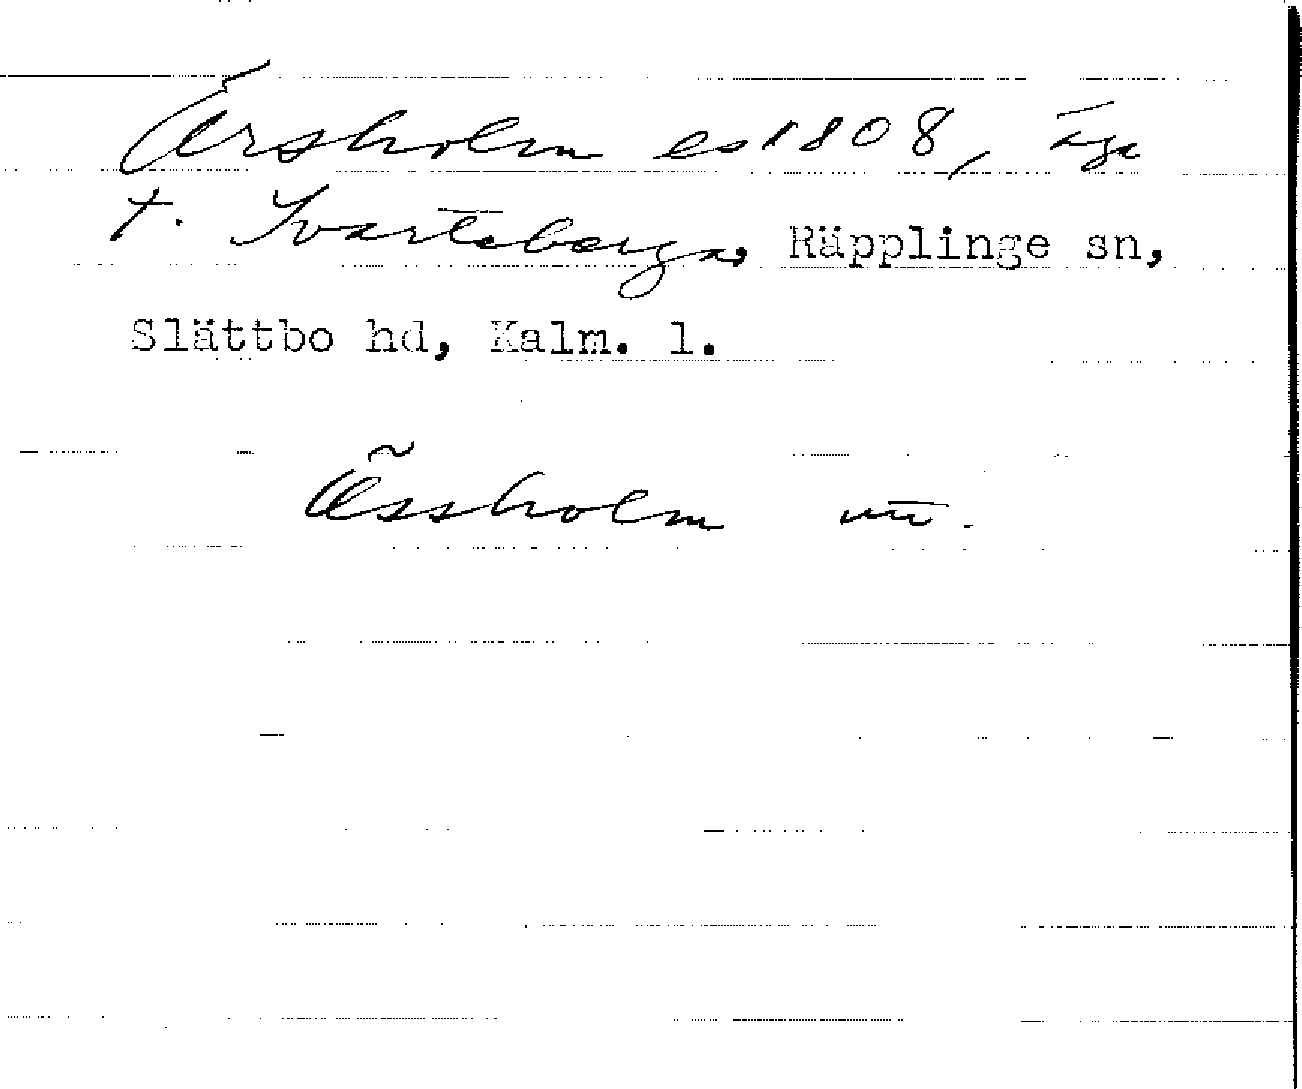 Ärsholm es 1808, äga
t. Svarteberga, Räpplinge sn,
Slättbo hd, Kalm. l.
Össholm